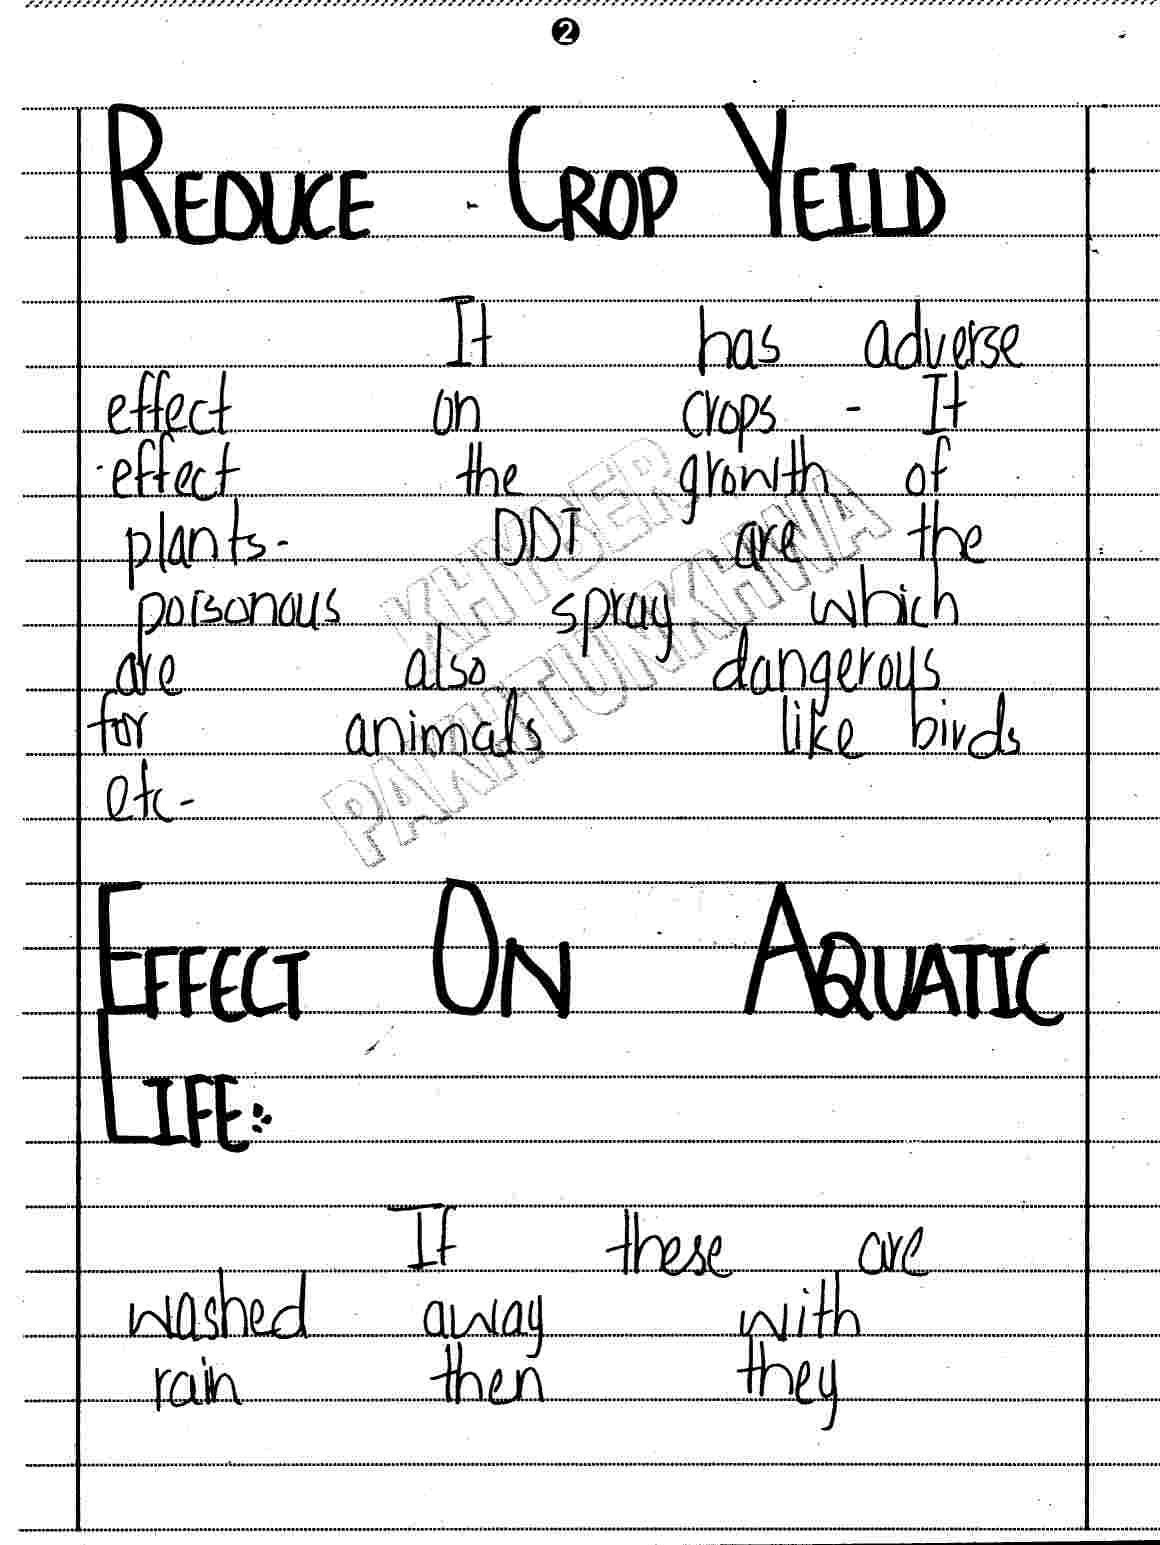 2
REDUCE - CROP YEILD
It has adverse
effect on crops - It
effect the growth of
plants- DDT are the
poisonous spray which
are also dangerous
for animals like birds
etc-
KHYBER
PAKHTUNKHWA
EFFECT ON AQUATIC
LIFE:
If these are
washed away with
rain then they